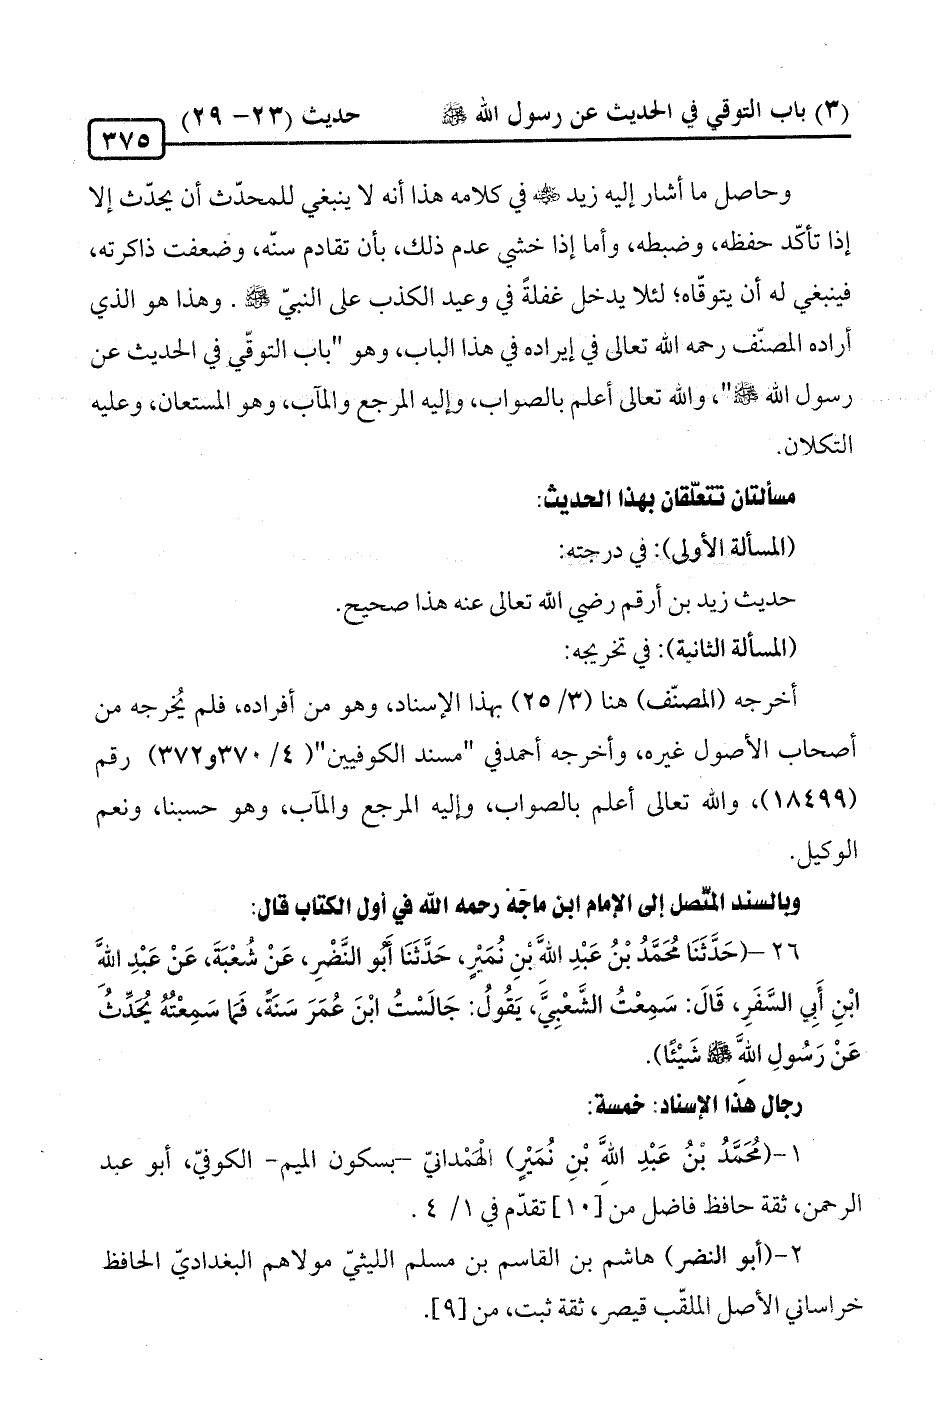 (٣) باب التوقي في الحديث عن رسول الله ﷺ حديث (٢٣- ٢٩)
٣٧٥
وحاصل ما أشار إليه زيد ﷺ في كلامه هذا أنه لا ينبغي للمحدّث أن يحدّث إلا
إذا تأكّد حفظه، وضبطه، وأما إذا خشي عدم ذلك، بأن تقادم سنّه، وضعفت ذاكرته،
فينبغي له أن يتوقّاه؛ لئلا يدخل غفلةً في وعيد الكذب على النبيّ ﷺ . وهذا هو الذي
أراده المصنّف رحمه الله تعالى في إيراده في هذا الباب، وهو "باب التوقّي في الحديث عن
رسول الله ﷺ"، والله تعالى أعلم بالصواب، وإليه المرجع والمآب، وهو المستعان، وعليه
التكلان.
مسألتان تتعلّقان بهذا الحديث:
(المسألة الأولى): في درجته:
حديث زيد بن أرقم رضي الله تعالى عنه هذا صحيح.
(المسألة الثانية): في تخريجه:
أخرجه (المصنّف) هنا (٣/ ٢٥) بهذا الإسناد، وهو من أفراده، فلم يُخرجه من
أصحاب الأصول غيره، وأخرجه أحمدفي "مسند الكوفيين"( ٤/ ٣٧٠و٣٧٢) رقم
(١٨٤٩٩)، والله تعالى أعلم بالصواب، وإليه المرجع والمآب، وهو حسبنا، ونعم
الوكيل.
وبالسند المتّصل إلى الإمام ابن ماجَهْ رحمه الله في أول الكتاب قال:
٢٦ -(حَدَّثَنَا مُحَمَّدُ بْنُ عَبْدِ اللهَّ بْنِ نُمَيْرٍ، حَدَّثَنَا أَبُو النَّضْرِ، عَنْ شُعْبَةَ، عَنْ عَبْدِ اللهَّ
ابْنِ أَبِي السَّفَرِ، قَالَ: سَمِعْتُ الشَّعْبِيَّ، يَقُولُ: جَالَسْتُ ابْنَ عُمَرَ سَنَةً، فَمَا سَمِعْتُهُ يُحَدِّثُ
عَنْ رَسُولِ اللهَّ ﷺ شَيْئًا).
رجال هذا الإسناد: خمسة:
١ -(مُحَمَّدُ بْنُ عَبْدِ اللهَّ بْنِ نُمَيْرٍ) الْهَمْدانيّ –بسكون الميم- الكوفيّ، أبو عبد
الرحمن، ثقة حافظ فاضل من [١٠] تقدّم في ١/ ٤ .
٢ -(أبو النضر) هاشم بن القاسم بن مسلم الليثيّ مولاهم البغداديّ الحافظ
خراساني الأصل الملقّب قيصر، ثقة ثبت، من [٩].